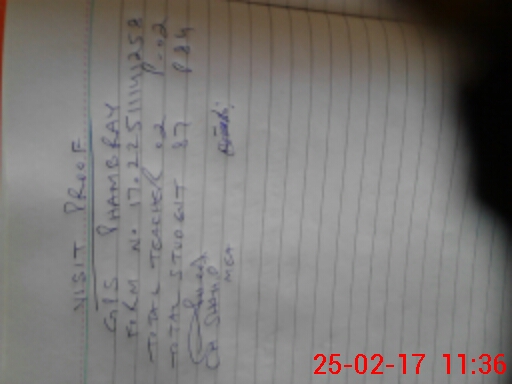 VISIT PROOF
GPS PHAMBRAY
FORM No 17.225111141258
TOTAL TEACHER 02 P-02
TOTAL STUDENT 87 P 84
MEA
25-02-17 11:36